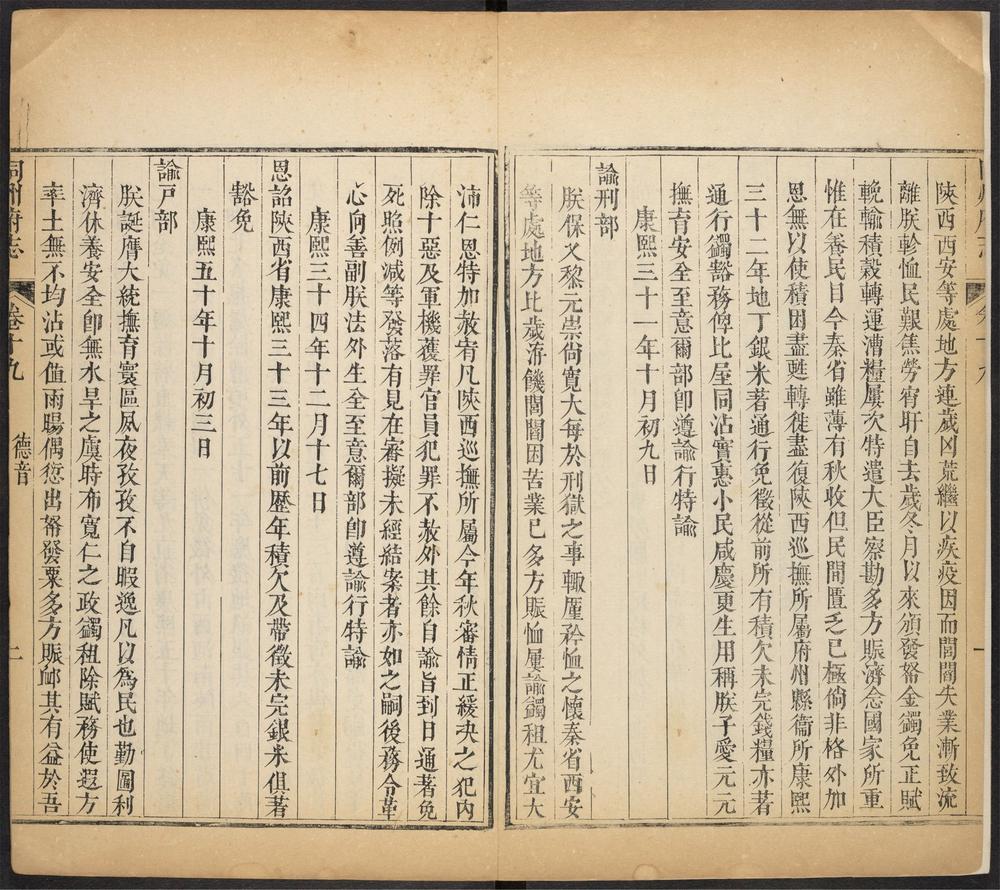 陝西西安等處地方連歲凶荒繼以疾疫因而閭閻失業漸致流
離朕軫恤民艱焦勞宵旰自去歲冬月以來頒發帑金蠲免正賦
輓輸積穀轉運漕糧屢次特遣大臣察勘多方賑濟念國家所重
惟在養民目今秦省雖薄有秋收但民間匱乏已極倘非格外加
恩無以使積困盡甦轉徙盡復陝西巡撫所屬府州縣衞所康熙
三十二年地丁銀米著通行免徵從前所有積欠未完錢糧亦著
通行蠲豁務俾比屋同沾實惠小民咸慶更生用稱朕子愛元元
撫育安全至意爾部卽遵諭行特諭
康熙三十一年十月初九日
諭刑部
朕保乂黎元崇尚寬大每於刑獄之事輒厪矜恤之懷秦省西安
等處地方比歲洊饑閭閻困苦業已多方賑恤屢諭蠲租尤宜大
沛仁恩特加赦宥凡陝西巡撫所屬今年秋審情正緩決之犯內
除十惡及軍機獲罪官員犯罪不赦外其餘自諭旨到日通著免
死照例減等發落有見在審擬未經結案者亦如之嗣後務令革
心向善副朕法外生全至意爾部卽遵諭行特諭
康熙三十四年十二月十七日
恩詔陝西省康熙三十三年以前歷年積欠及帶徵未完銀米俱著
豁免
康熙五十年十月初三日
諭戸部
朕誕膺大統撫育寰區夙夜孜孜不自暇逸凡以爲民也勤圖利
濟休養安全卽無水旱之虞時布寬仁之政蠲租除賦務使遐方
率土無不均沾或値雨暘偶愆出帑發粟多方賑䘏其有益於吾
同州府志 卷十九 德音 二